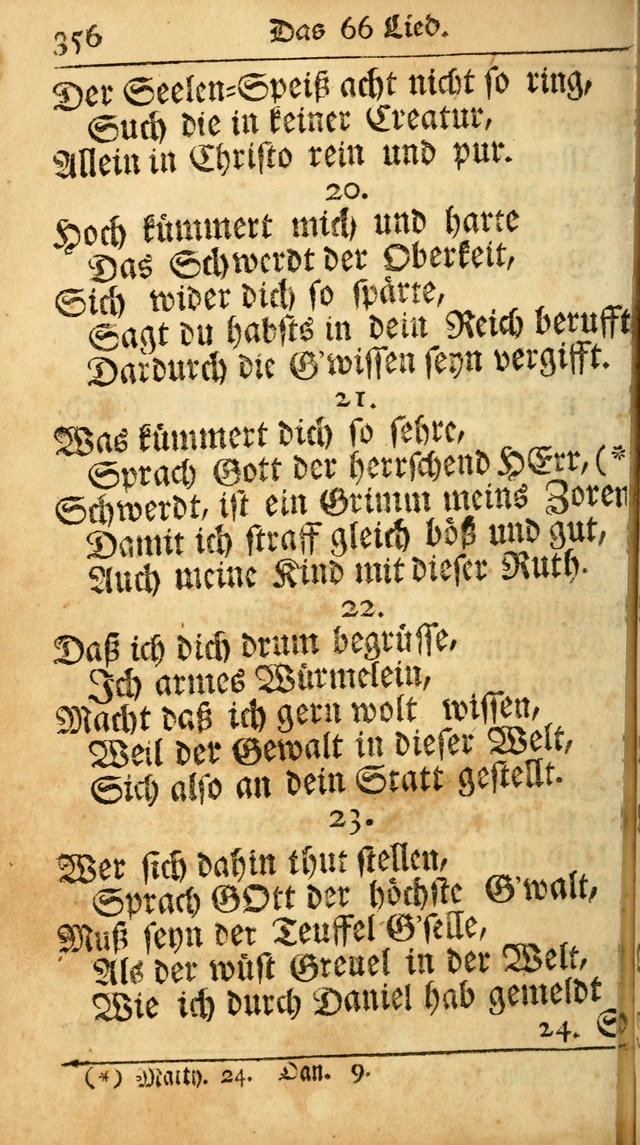 356 Das 66 Lied.
Der Seelen-Speiß acht nicht so ring,
Such die in keiner Creatur,
Allein in Christo rein und pur.
20.
Hoch kümmert mich und harte
Das Schwerdt der Oberkeit,
Sich wider dich so spärte,
Sagt du habsts in dein Reich berufft
Dardurch die G'wissen seyn vergifft.
21.
Was kümmert dich so sehre,
Sprach Gott der herrschend HErr, (*
Schwerdt, ist ein Grimm meins Zoren
Damit ich straff gleich böß und gut,
Auch meine Kind mit dieser Ruth.
22.
Daß ich dich drum begrüsse,
Ich armes Würmelein,
Macht daß ich gern wolt wissen,
Weil der Gewalt in dieser Welt,
Sich also an dein Statt gestellt.
23.
Wer sich dahin thut stellen,
Sprach GOtt der höchste G'walt,
Muß seyn der Teuffel G'selle,
Als der wüst Greuel in der Welt,
Wie ich durch Daniel hab gemeldt
24.
(*) Matth. 24. Dan. 9.